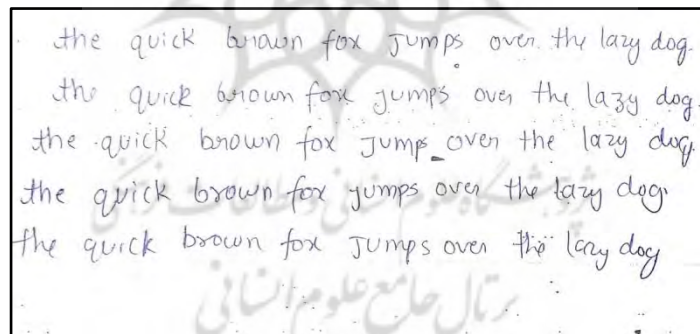 the quick brown fox jumps over the lazy dog.
the quick brown fox jumps over the lazy dog.
the quick brown fox jump over the lazy dog.
the quick brown fox jumps over the lazy dog.
the quick brown fox jumps over the lazy dog
پژوهشگاه علوم انسانی و مطالعات فرهنگی
پرتال جامع علوم انسانی